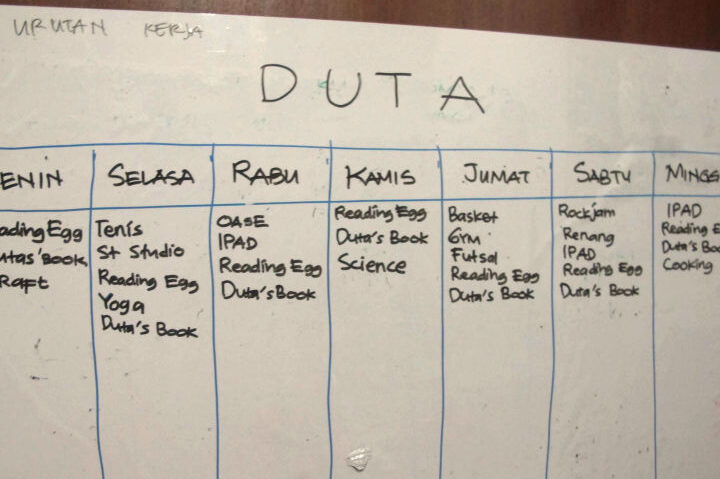 URUTAN KERJA
DUTA
ENIN SELASA RABU KAMIS JUMAT SABTU MINGG
ading Egg
utas'Book
Raft
Tenis
St Studio
Reading Egg
Yoga
Duta's Book
OASE
IPAD
Reading Egg
Duta's Book
Reading Egg
Duta's Book
Science
Basket
Gym
Futsal
Reading Egg
Duta's Book
Rockjam
Renang
IPAD
Reading Egg
Duta's Book
IPAD
Reading E
Duta's Bo
Cooking